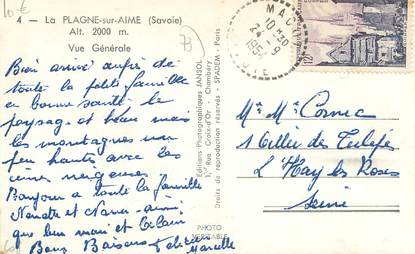 10€
4 - La PLAGNE-sur-AIME (Savoie)
Alt. 2000 m.
Vue Générale
Bien arrivé auprès de
toute la petite famille
en bonne santé le
paysage et beau mais
les montagnes un
peu hautes avec les
cimes neigeuses
Bonjour a toute la famille
Nanette et Nana ainsi
que ben mari et
Bons Baisers
Marcelle
Editions Photographiques JANSOL
1, Rue Croix-d'Or Chambéry
Droits de reproduction réservés - SPADEM - Paris
PHOTO
VERITABLE
MACOT
10 H 30
24 - 9
195
12F
Mr Mme Cornec
1 Allée des Tulipes
L'Hay les Roses
Seine